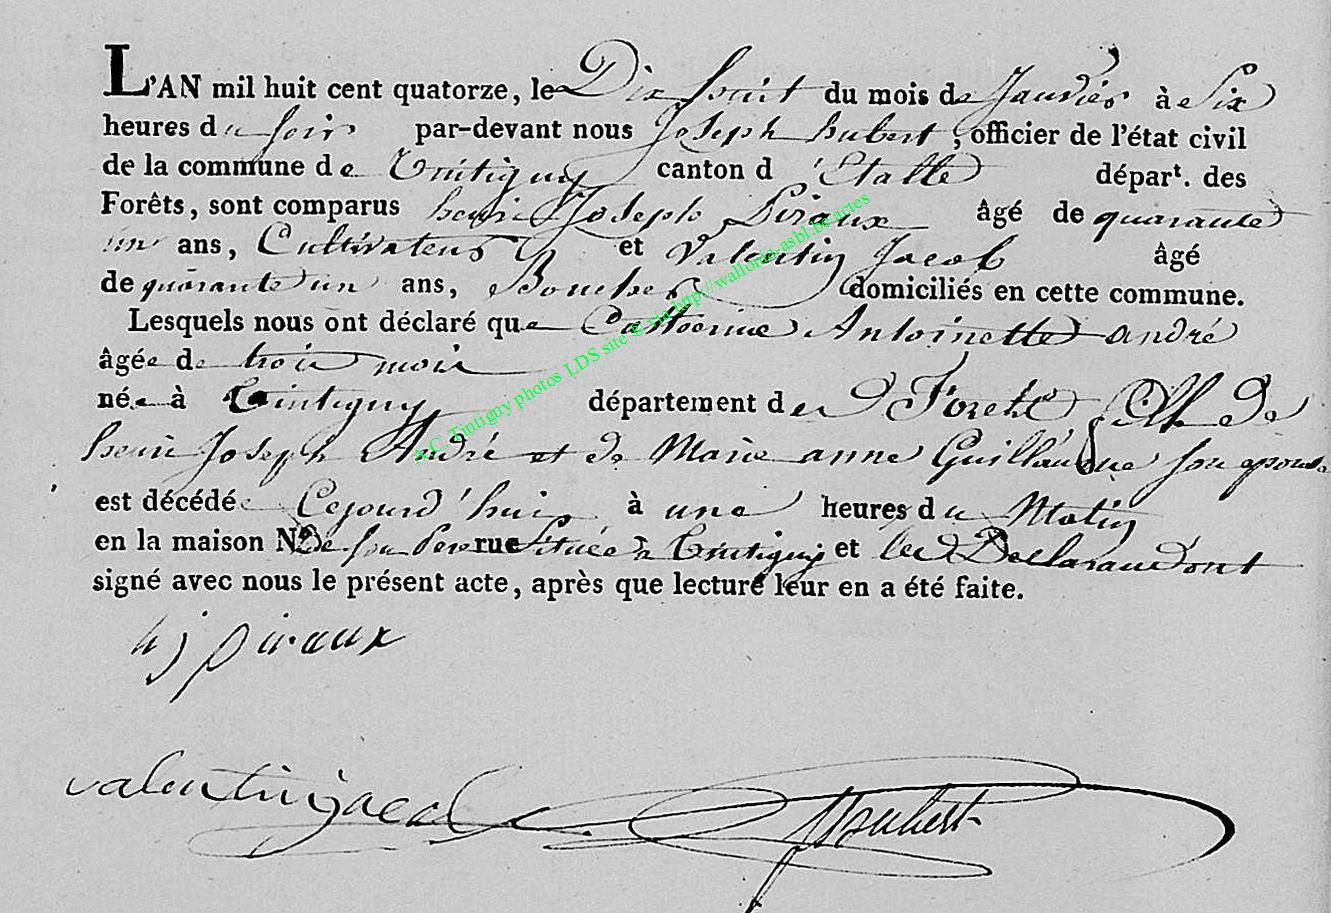 L'AN mil huit cent quatorze, le Dix huit du mois de Janvier à Six
heures du soir par-devant nous Joseph hubert, officier de l'état civil
de la commune de Tintigny canton d'Etalle départ. des
Forêts, sont comparus henri Joseph Piraux âgé de quarante
un ans, Cultivateur et Valentin Jacob âgé
de quarante un ans, Boucher domiciliés en cette commune.
Lesquels nous ont déclaré que Catherine Antoinette andré
âgée de trois mois
née à Tintigny département des Forets fille de
henri Joseph André et de Marie anne Guillaume son epouse
est décédée Cejourd'hui à une heures du Matin
en la maison No de son Pere rue Située à Tintigny et les Declarans ont
signé avec nous le présent acte, après que lecture leur en a été faite.
hj piraux
valentin jacob
hubert
Tintigny photos LDS site via http://wallonia-asbl.be/actes